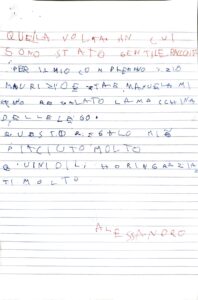 QUELLA VOLTA IN CUI
SONO STATO GENTILE RACCONTA
PER IL MIO COMPLEANNO ZIO
MAURIZIO E ZIA EMANUELA MI
REGALATO LA MACCHINA
DELLE LEGO.
QUESTO REGALO MI È
PIACIUTO MOLTO
QUINDI LI HO RINGRAZIA
TI MOLTO
ALESSANDRO